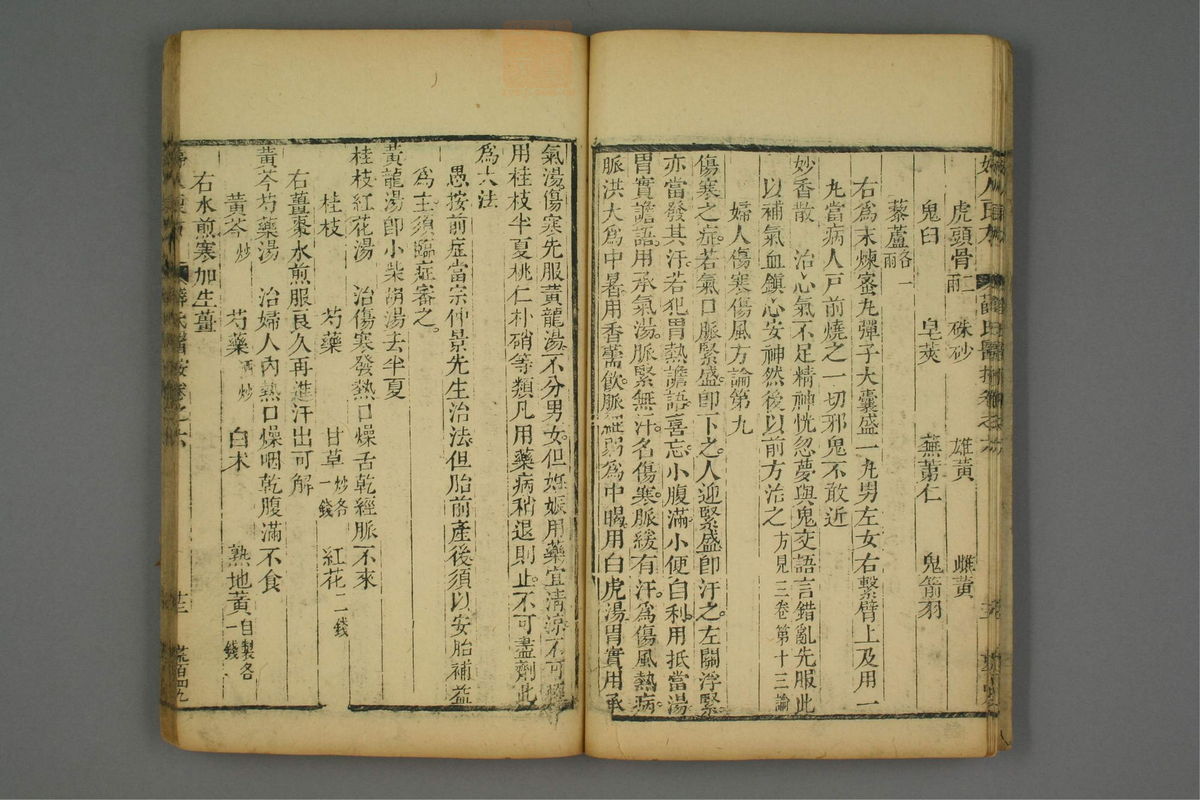 虎頭骨二兩 硃砂 雄黃 雌黃
鬼臼 皂莢 蕪荑仁 鬼箭羽
藜蘆各一兩
右爲末煉蜜丸彈子大囊盛一丸男左女右繫臂上及用一
丸當病人戸前燒之一切邪鬼不敢近
妙香散 治心氣不足精神恍忽夢與鬼交語言錯亂先服此
以補氣血鎮心安神然後以前方治之方見三卷第十三論
婦人傷寒傷風方論第九
傷寒之症若氣口脈緊盛卽下之人迎緊盛卽汗之左關浮緊
亦當發其汗若犯胃熱譫語喜忘小腹滿小便自利用抵當湯
胃實譫語用承氣湯脈緊無汗名傷寒脈緩有汗爲傷風熱病
脈洪大爲中暑用香薷飲脈經弱爲中暍用白虎湯胃實用承
氣湯傷寒先服黃龍湯不分男女但妊娠用藥宜清涼不可
用桂枝半夏桃仁朴硝等類凡用藥病稍退則止不可盡劑此
爲大法
愚按前症當宗仲景先生治法但胎前產後須以安胎補益
爲主須臨症審之
黃龍湯卽小柴胡湯去半夏
桂枝紅花湯 治傷寒發熱口燥舌乾經脈不來
桂枝 芍藥 甘草炒各一錢 紅花二錢
右薑棗水煎服良久再進汗出可解
黃芩芍藥湯 治婦人內熱口燥咽乾腹滿不食
黃芩炒 芍藥酒炒 白术 熟地黃自製各一錢
右水煎寒加生薑